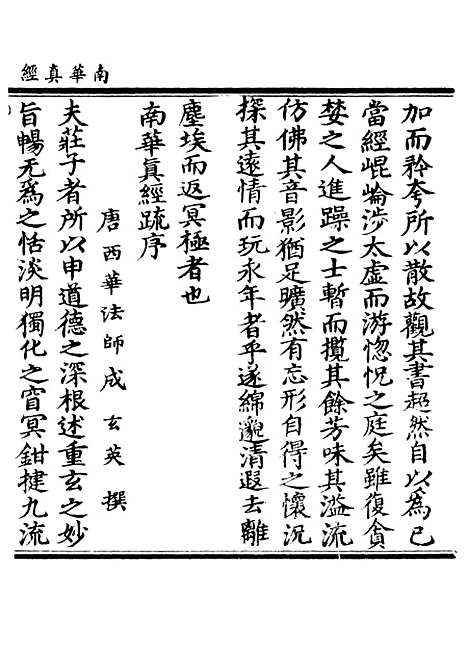 南華真經
加而矜夸所以散故觀其書超然自以為已
當經崐崘涉太虚而游惚怳之庭矣雖復貪
婪之人進躁之士暫而攬其餘芳味其溢流
仿佛其音影猶足曠然有忘形自得之懷況
探其遠情而玩永年者乎遂綿邈清遐去離
塵埃而返冥極者也
南華真經疏序
唐西華法師成玄英撰
夫莊子者所以申道德之深根述重玄之妙
旨暢无為之恬淡明獨化之窅冥鉗揵九流